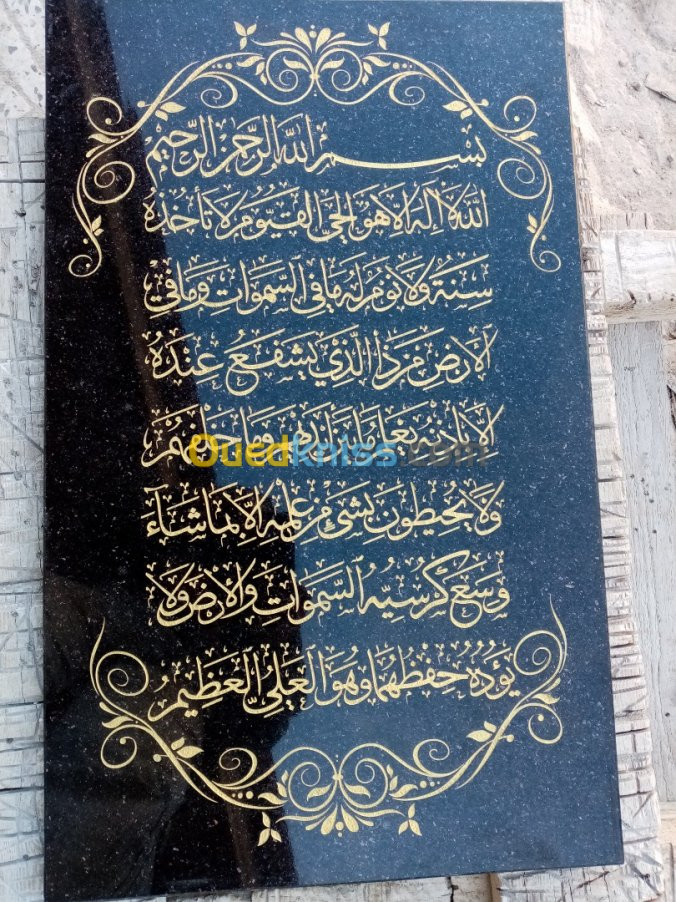 بسم الله الرحمن الرحيم
الله لا إله إلا هو الحي القيوم لا تأخذه
سنة ولا نوم له ما في السموات وما في
الارض من ذا الذي يشفع عنده
إلا بإذنه يعلم ما بين أيديهم وما خلفهم
Ouedkniss.com
ولا يحيطون بشيء من علمه إلا بما شاء
وسع كرسيه السموات والأرض ولا
يؤده حفظهما وهو العلي العظيم